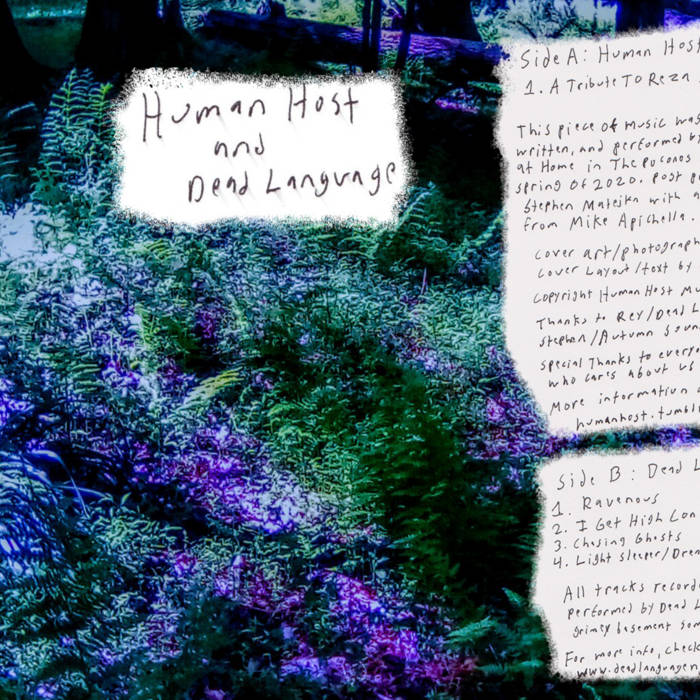 Human Host
and
Dead Language
Side A: Human Host
1. A Tribute To Reza
This piece of music was
written, and performed b
at Home in The Poconos
spring of 2020. Post p
Stephen Matejka with a
from Mike Apichella.
cover art/photograph
cover Layout/text by
copyright Human Host Mu
Thanks to Rey/Dead L
Stephen/Autumn Soun
special Thanks to everyo
who cares about us
More information
humanhost.tumbl
Side B: Dead L
1. Ravenous
2. I Get High Con
3. Chasing Ghosts
4. Light Sleeper/Drea
All tracks record
performed by Dead L
grimey basement som
For more info, check
www.deadlanguagen